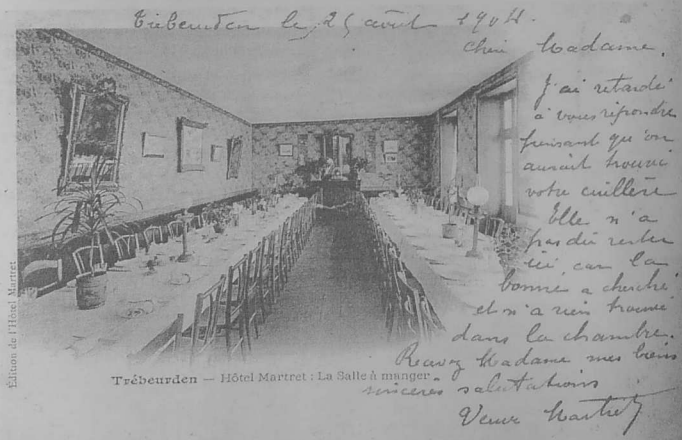 Trébeurden le 25 août 1904.
Chère Madame,
J'ai retardé
à vous répondre
pensant qu'on
aurait trouvé
votre cuillère
Elle n'a
pas dû rester
ici, car la
bonne a cherché
et n'a rien trouvé
dans la chambre.
Recevez Madame mes biens
sincères salutations
Veuve Martret
Édition de l'Hôtel Martret
Trébeurden — Hôtel Martret : La Salle à manger